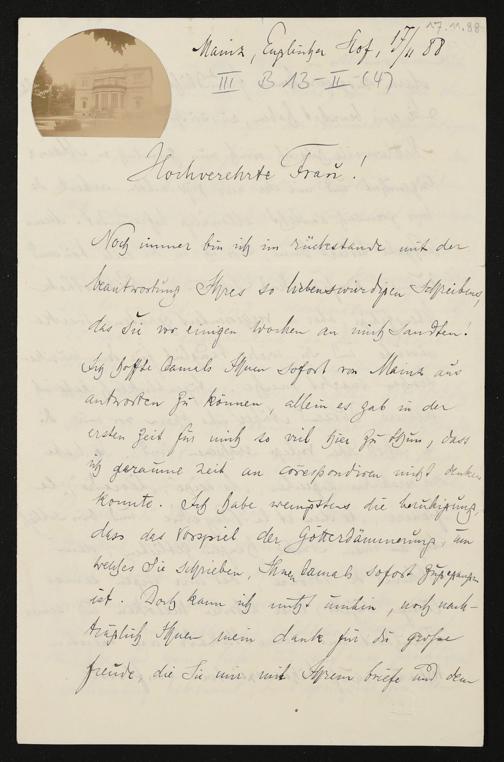 17.11.88
Mainz, Englischer Hof, 17/11 88
III B 13-II (4)
Hochverehrte Frau!
Noch immer bin ich im rückstande mit der
beantwortung Ihres so liebenswürdigen schreibens,
das Sie vor einigen wochen an mich sandten!
Ich hoffte damals Ihnen sofort von Mainz aus
antworten zu können, allein es gab in der
ersten zeit für mich so viel hier zu thun, dass
ich geraume zeit an correspondiren nicht denken
konnte. Ich habe wenigstens die beruhigung,
dass das vorspiel der Götterdämmerung, um
welches Sie schrieben, Ihnen damals sofort zugegangen
ist. Doch kann ich nicht umhin, noch nach-
träglich Ihnen mein dank für die grosse
freude, die Sie mir mit Ihrem briefe und dem